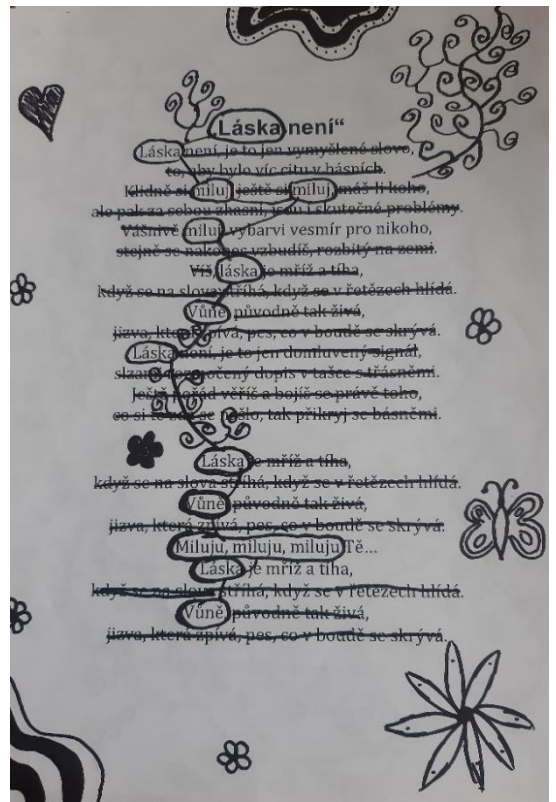 Láska není“
Láska není, je to jen vymyšlené slovo,
to, aby bylo víc citu v básních.
Klidně si miluj, ještě si miluj, máš-li koho,
ale pak za sebou zhasni, jsou i skutečné problémy.
Vášnivě miluj, vybarvi vesmír pro nikoho,
stejně se nakonec vzbudíš, rozbitý na zemi.
Víš, láska je mříž a tíha,
když se na slova stříhá, když se v řetězech hlídá.
Vůně, původně tak živá,
jizva, která zpívá, pes, co v boudě se skrývá.
Láska není, je to jen domluvený signál,
dopis v tašce s třásněmi.
Ještě pořád věříš a bojíš se právě toho,
co si se našlo, tak přikryj se básněmi.
Láska je mříž a tíha,
když se na slova stříhá, když se v řetězech hlídá.
Vůně, původně tak živá,
jizva, která zpívá, pes, co v boudě se skrývá.
Miluju, miluju, miluju Tě...
Láska je mříž a tíha,
když se na slova stříhá, když se v řetězech hlídá.
Vůně, původně tak živá,
jizva, která zpívá, pes, co v boudě se skrývá.